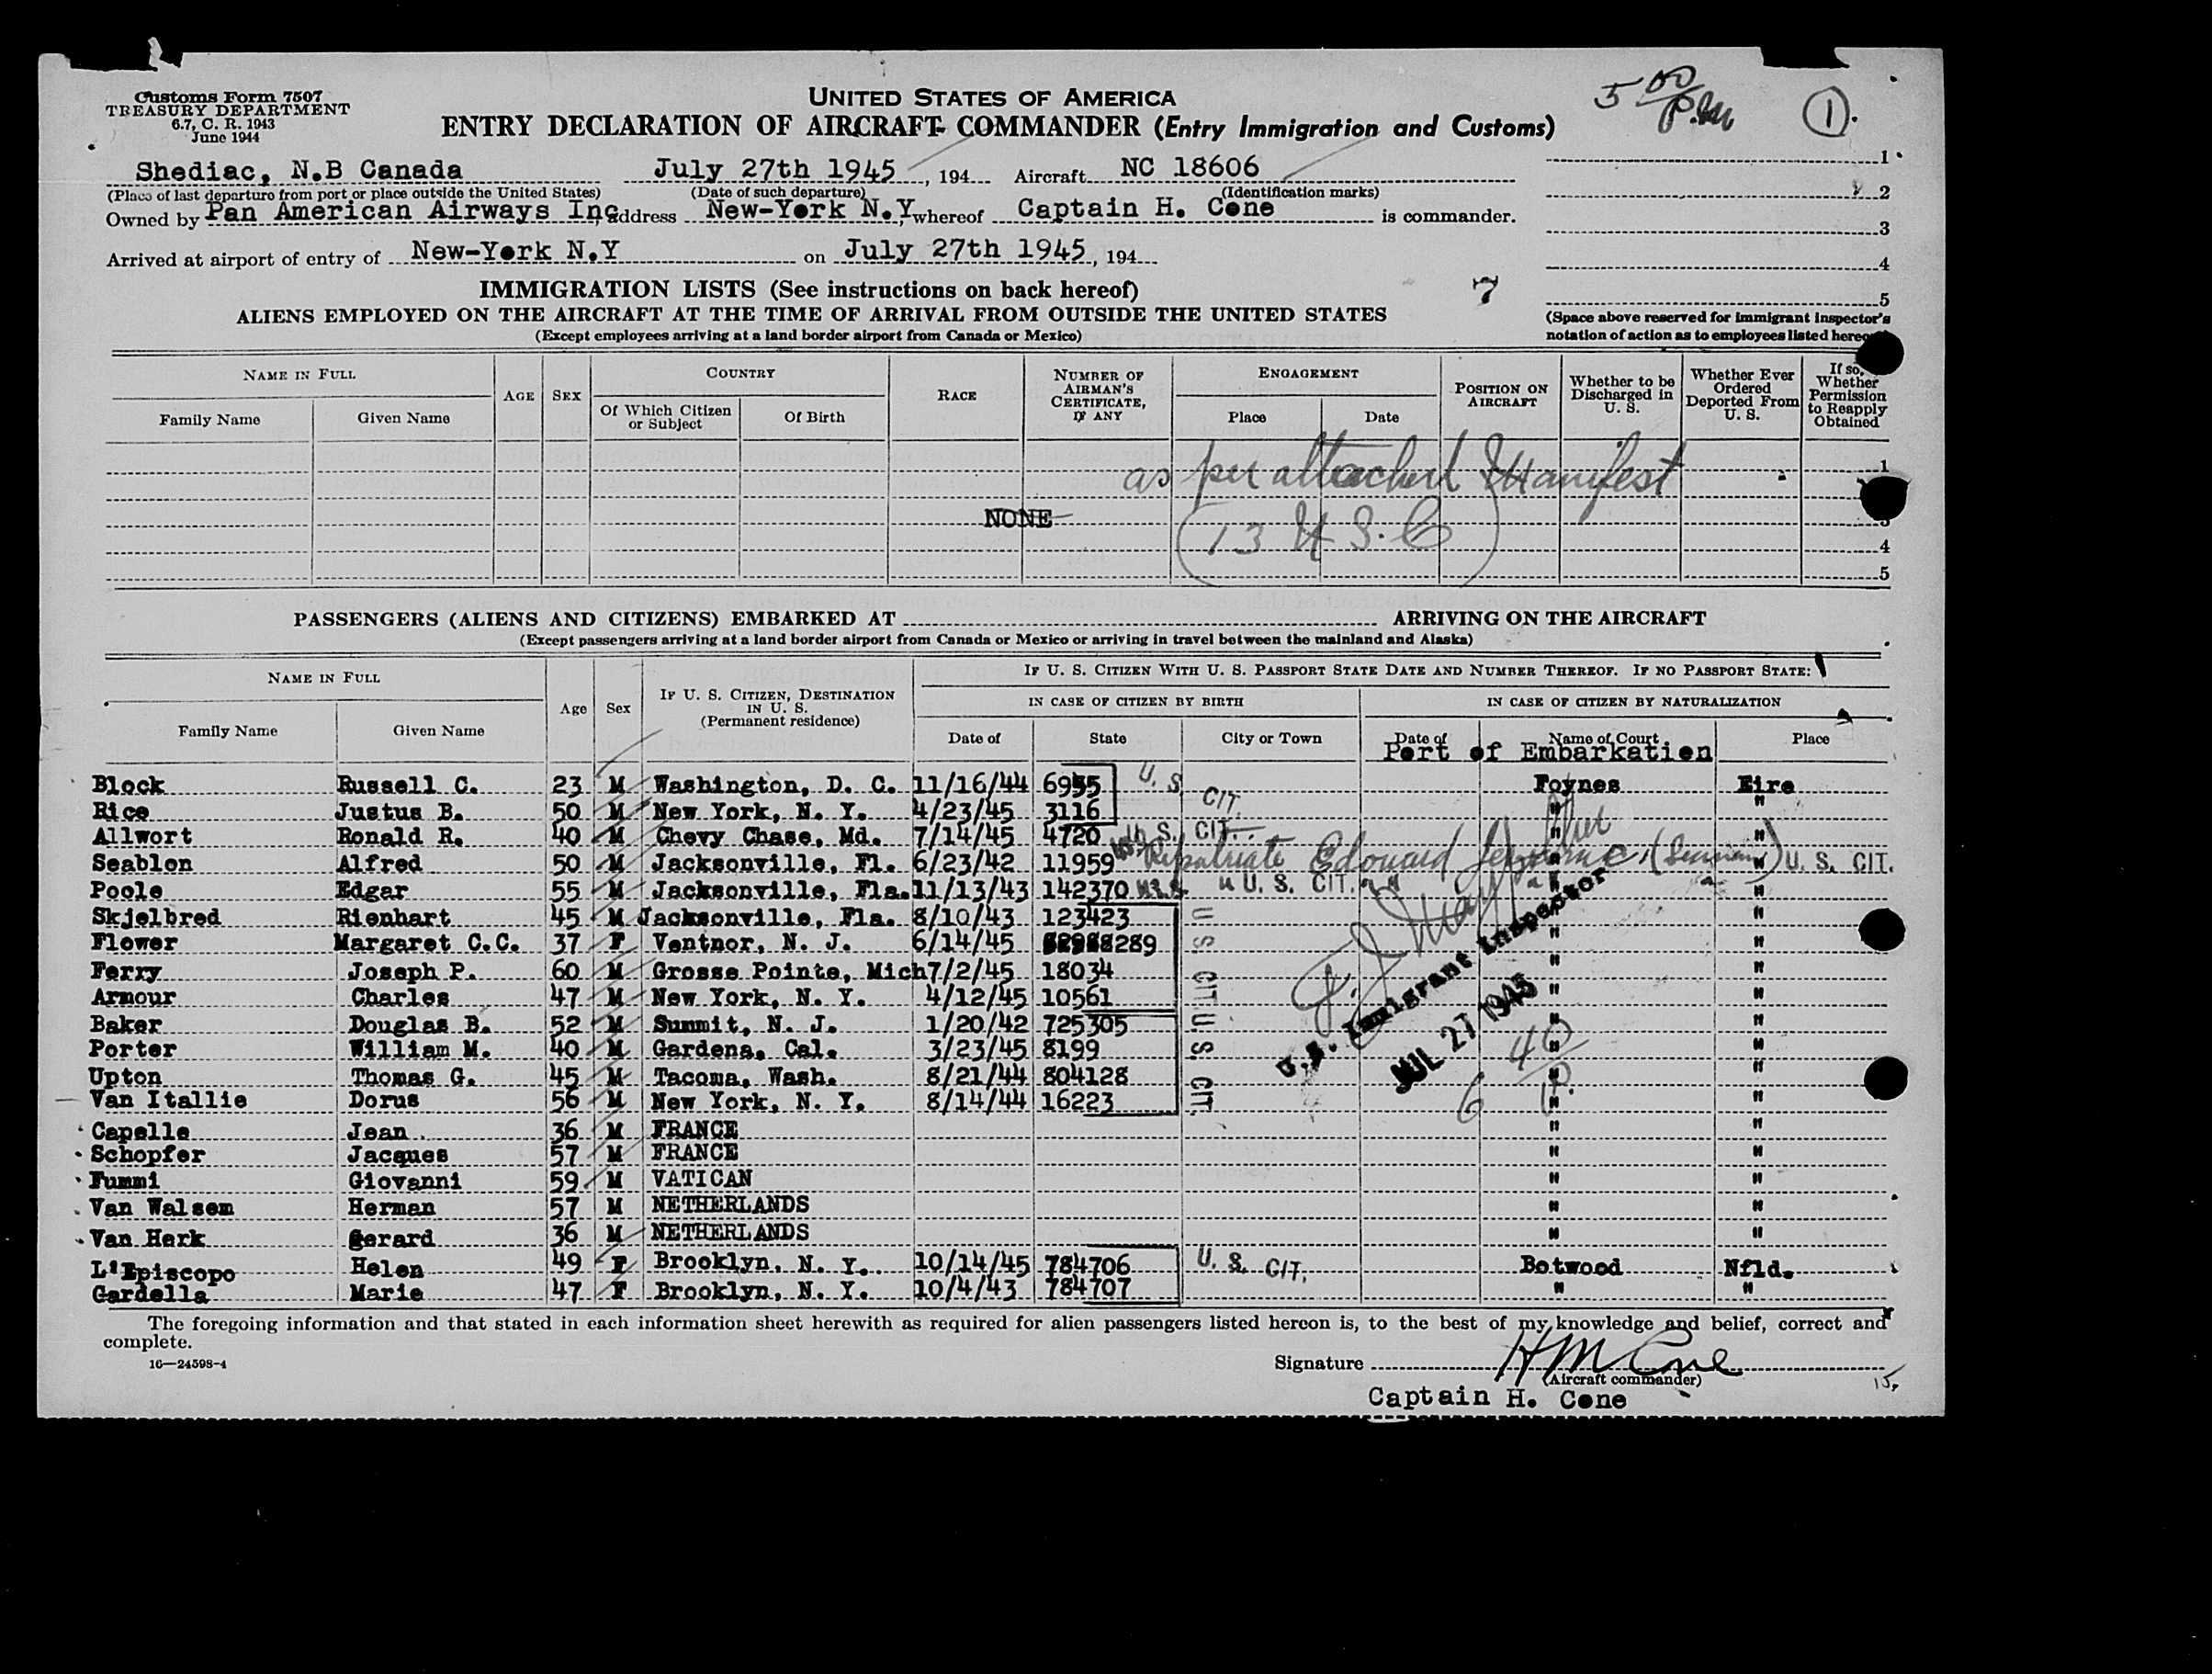 Customs Form 7507
TREASURY DEPARTMENT
6.7, C. R. 1943
June 1944
UNITED STATES OF AMERICA
ENTRY DECLARATION OF AIRCRAFT COMMANDER (Entry Immigration and Customs)
5 00 P.M. 1.
Shediac, N.B Canada July 27th 1945, 194 Aircraft NC 18606
(Place of last departure from port or place outside the United States) (Date of such departure) (Identification marks)
Owned by Pan American Airways Inc address New-York N.Y, whereof Captain H. Cone is commander.
Arrived at airport of entry of New-York N.Y on July 27th 1945, 194
1
2
3
4
5
(Space above reserved for immigrant inspector's
notation of action as to employees listed
IMMIGRATION LISTS (See instructions on back hereof) 7
ALIENS EMPLOYED ON THE AIRCRAFT AT THE TIME OF ARRIVAL FROM OUTSIDE THE UNITED STATES
(Except employees arriving at a land border airport from Canada or Mexico)
NAME IN FULL AGE SEX COUNTRY RACE NUMBER OF AIRMAN'S CERTIFICATE, IF ANY ENGAGEMENT POSITION ON AIRCRAFT Whether to be Discharged in U. S. Whether Ever Ordered Deported From U. S. If so, Whether Permission to Reapply Obtained
Family Name Given Name Of Which Citizen or Subject Of Birth Place Date
as per attached Manifest 1
NONE
(13 U S. C)
4
5
PASSENGERS (ALIENS AND CITIZENS) EMBARKED AT ARRIVING ON THE AIRCRAFT
(Except passengers arriving at a land border airport from Canada or Mexico or arriving in travel between the mainland and Alaska)
NAME IN FULL Age Sex IF U. S. CITIZEN, DESTINATION IN U. S. (Permanent residence) IF U. S. CITIZEN WITH U. S. PASSPORT STATE DATE AND NUMBER THEREOF. IF NO PASSPORT STATE:
IN CASE OF CITIZEN BY BIRTH IN CASE OF CITIZEN BY NATURALIZATION
Family Name Given Name Date of State City or Town Date of Name of Court Place
Port of Embarkation
Block Russell C. 23 M Washington, D. C. 11/16/44 6955 U. S. CIT. Foynes Eire
Rice Justus B. 50 M New York, N. Y. 4/23/45 3116 " "
Allwort Ronald R. 40 M Chevy Chase, Md. 7/14/45 4720 U. S. CIT. " "
Seablon Alfred 50 M Jacksonville, Fl. 6/23/42 11959 Repatriate Edouard " U. S. CIT.
Poole Edgar 55 M Jacksonville, Fla. 11/13/43 142370 U. S. CIT. " "
Skjelbred Rienhart 45 M Jacksonville, Fla. 8/10/43 123423 " "
Flower Margaret C.C. 37 F Ventnor, N. J. 6/14/45 8289 " "
Ferry Joseph P. 60 M Grosse Pointe, Mich 7/2/45 18034 " "
Armour Charles 47 M New York, N. Y. 4/12/45 10561 " "
Baker Douglas B. 52 M Summit, N. J. 1/20/42 725305 " "
Porter William M. 40 M Gardena, Cal. 3/23/45 8199 " "
Upton Thomas G. 45 M Tacoma, Wash. 8/21/44 804128 " "
Van Itallie Dorus 56 M New York, N. Y. 8/14/44 16223 " "
U S CIT.
U S CIT.
U.S. Immigrant Inspector
JUL 27 1945
6 40 P.
Capelle Jean 36 M FRANCE " "
Schopfer Jacques 57 M FRANCE " "
Fummi Giovanni 59 M VATICAN " "
Van Walsem Herman 57 M NETHERLANDS " "
Van Herk Gerard 36 M NETHERLANDS " "
L'Episcopo Helen 49 F Brooklyn, N. Y. 10/14/45 784706 U. S. CIT. Botwood Nfld.
Gardella Marie 47 F Brooklyn, N. Y. 10/4/43 784707 " "
The foregoing information and that stated in each information sheet herewith as required for alien passengers listed hereon is, to the best of my knowledge and belief, correct and
complete.
16—24598-4
Signature H M Cone
(Aircraft commander)
Captain H. Cone
15